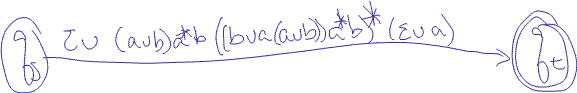 q_s ε∪ (a∪b)a*b ((b∪a(a∪b))a*b)* (ε∪a) q_t